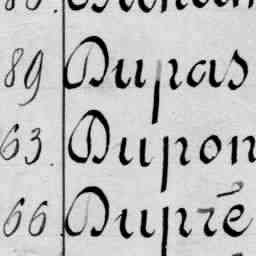 89 Dupas
63. Dupon
66. Dupré